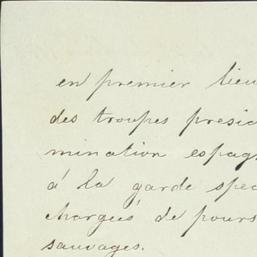 en premier lieu
des troupes presid
mination espag
à la garde spec
chargées de pours
sauvages.